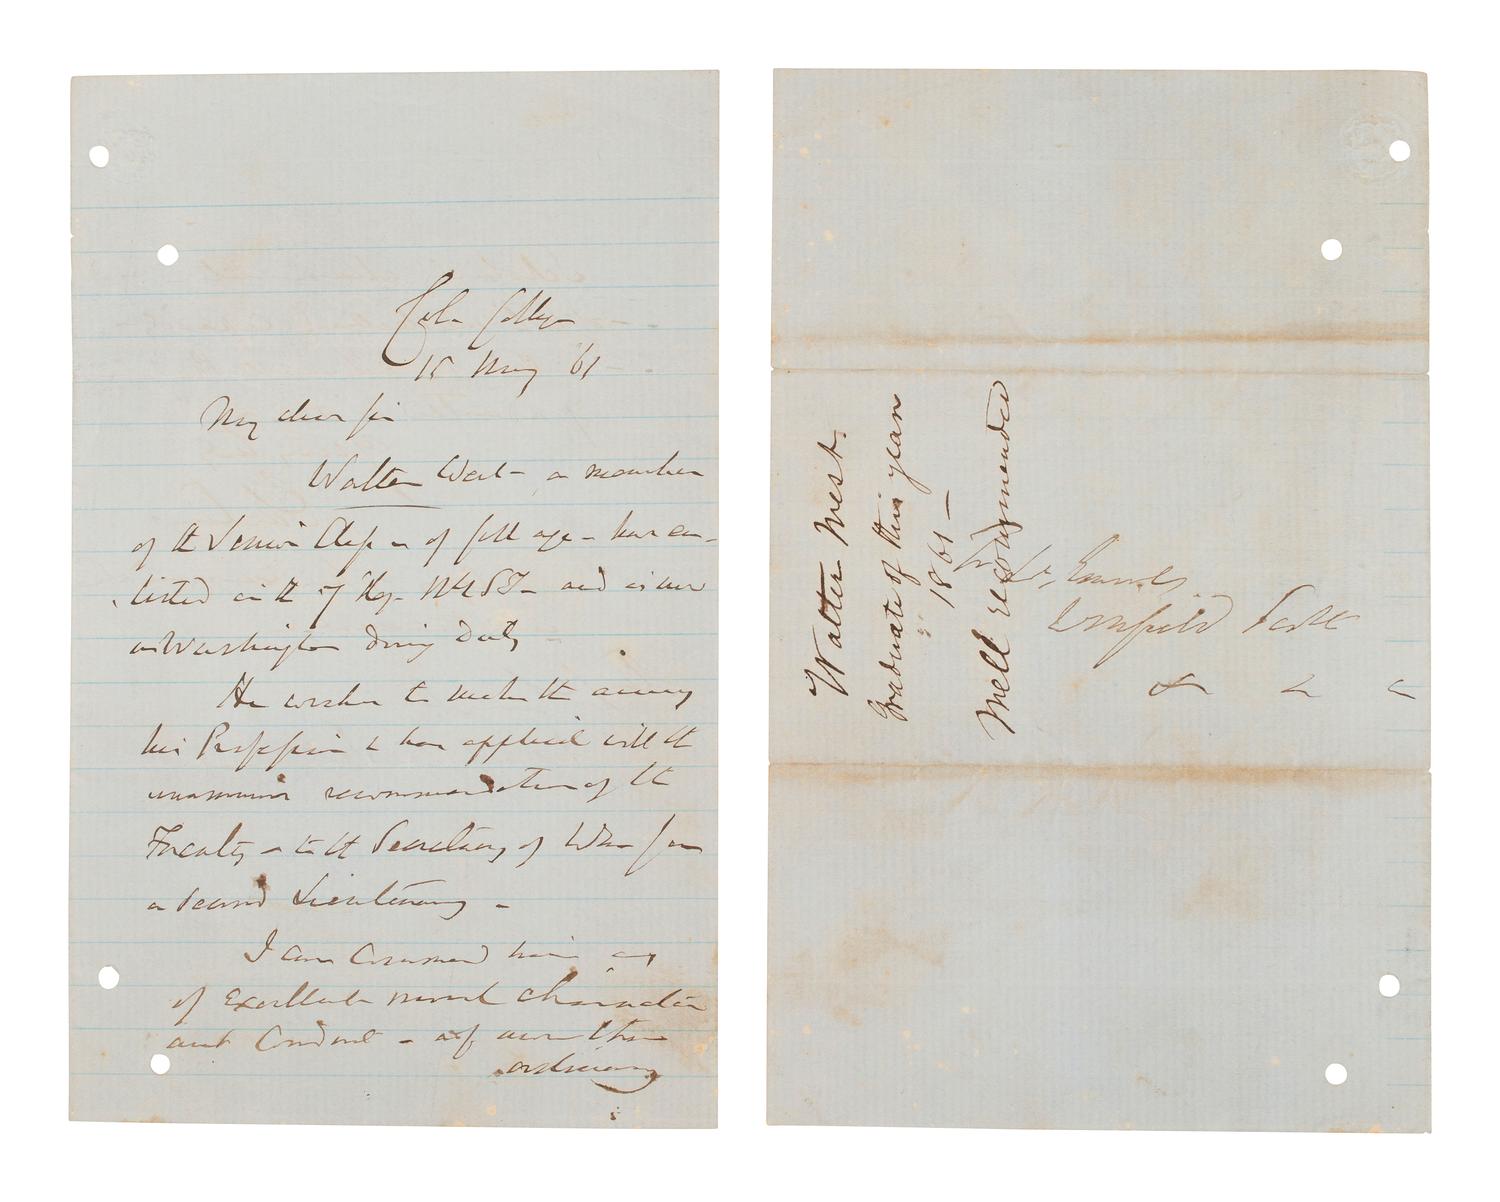 Cola College
15 May '61
My dear Sir
Walter West - a member
of the Senior Class - of full age - has en-
listed in the 7 Reg. NYST - and is now
in Washington doing Duty
He wishes to make the army
his Profession & has applied with the
unanimous recommendation of the
Faculty - to the Secretary of War for
a second Lieutenancy -
I can commend him as
of Excellent moral character
and Conduct - & of more than
ordinary
Walter West.
Graduate of this year
1861 -
Well recommended
Lt. General
Winfield Scott
& &c &c